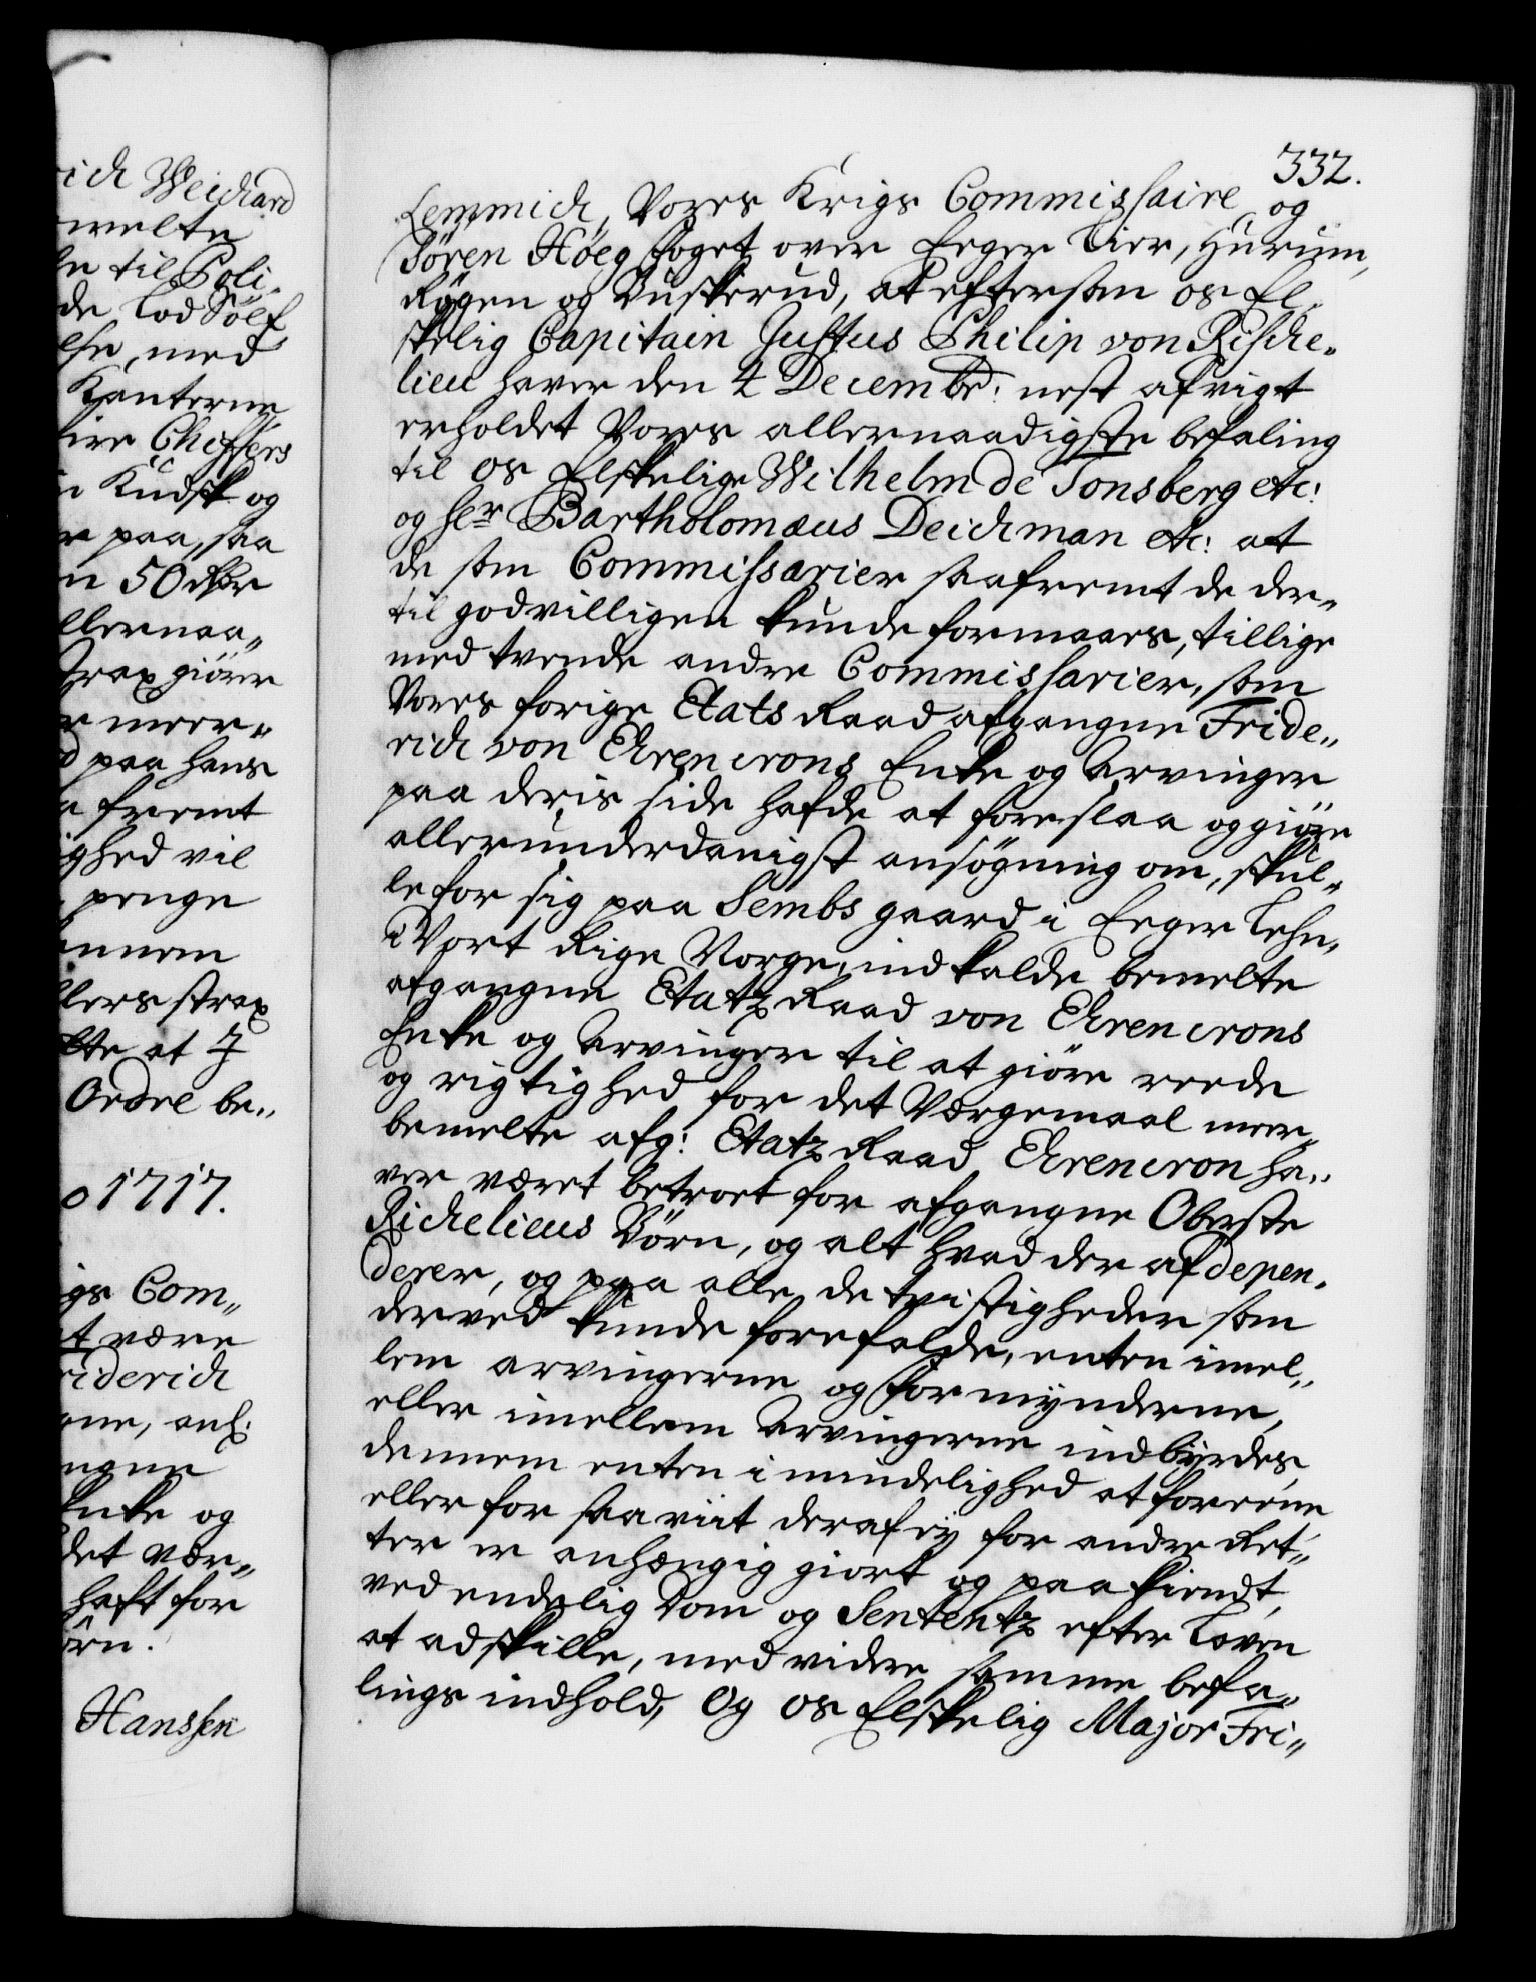 ich Weichard
melte
n til Poli-
de Lod Sölf
else, med
Kanterne
Cheffers
Kudsk og
paa, saa
n 50
llernaa„
strax giöre
r meer„
d paa hans
fremt
ighed vil
penge
ennem
llers strax
at
Ordre be„
o 1717.
igs Com„
t være
riderich
rne, anl:
ngne
Enke og
det vær„
haft for
örn.
Hanssen
332.
Lemmich, Vores Krigs Commissaire, og
Sören Höeg foget over Eeger Lier, Hurum,
Røgen og Buskerud, at eftersom os El-
skelig Capitain Justus Philip von Rische-
lieu haver den 4 Decembr: nest afvigt
erholdet Vores allernaadigste befaling
til os Elskelige Wilhelm de Tonsberg etc:
og Her Bartholomæus Deichman etc: at
de som Commissarier saafremt de der„
til godvilligen kunde formaaes, tillige
med tvende andre Commissarier, som
Vores forige Etats Raad afgangne Fride„
rich von Ehrencrons Enke og Arvinger
paa deris side hafde at foreslaa og giöre
allerunderdanigst ansögning om, skul„
le for sig paa Sembs gaard i Eeger Lehn,
i Vort Rige Norge, indkalde bemelte
afgangne Etatz Raad von Ehrencrons
Enke og Arvinger til at giöre reede
og rigtighed for det Værgemaal meer„
bemelte afg: Etatz Raad Ehrencron ha„
ver været betroet for afgangne Oberste
Richelieus Börn, og alt hvad der af depen-
derer, og paa alle de tvistigheder som
derved kunde forefalde, enten imel„
lem arvingerne og formynderne,
eller imellem Arvingerne indbyrdes,
dennem enten i mindelighed at foreene
eller for saa viit deraf ey for andre Ret„
ter er anhængig giort og paakiendt,
ved endelig Dom og Sententz efter Loven
at adskille, med videre samme befa„
lings indhold, Og os Elskelig Major Fri„